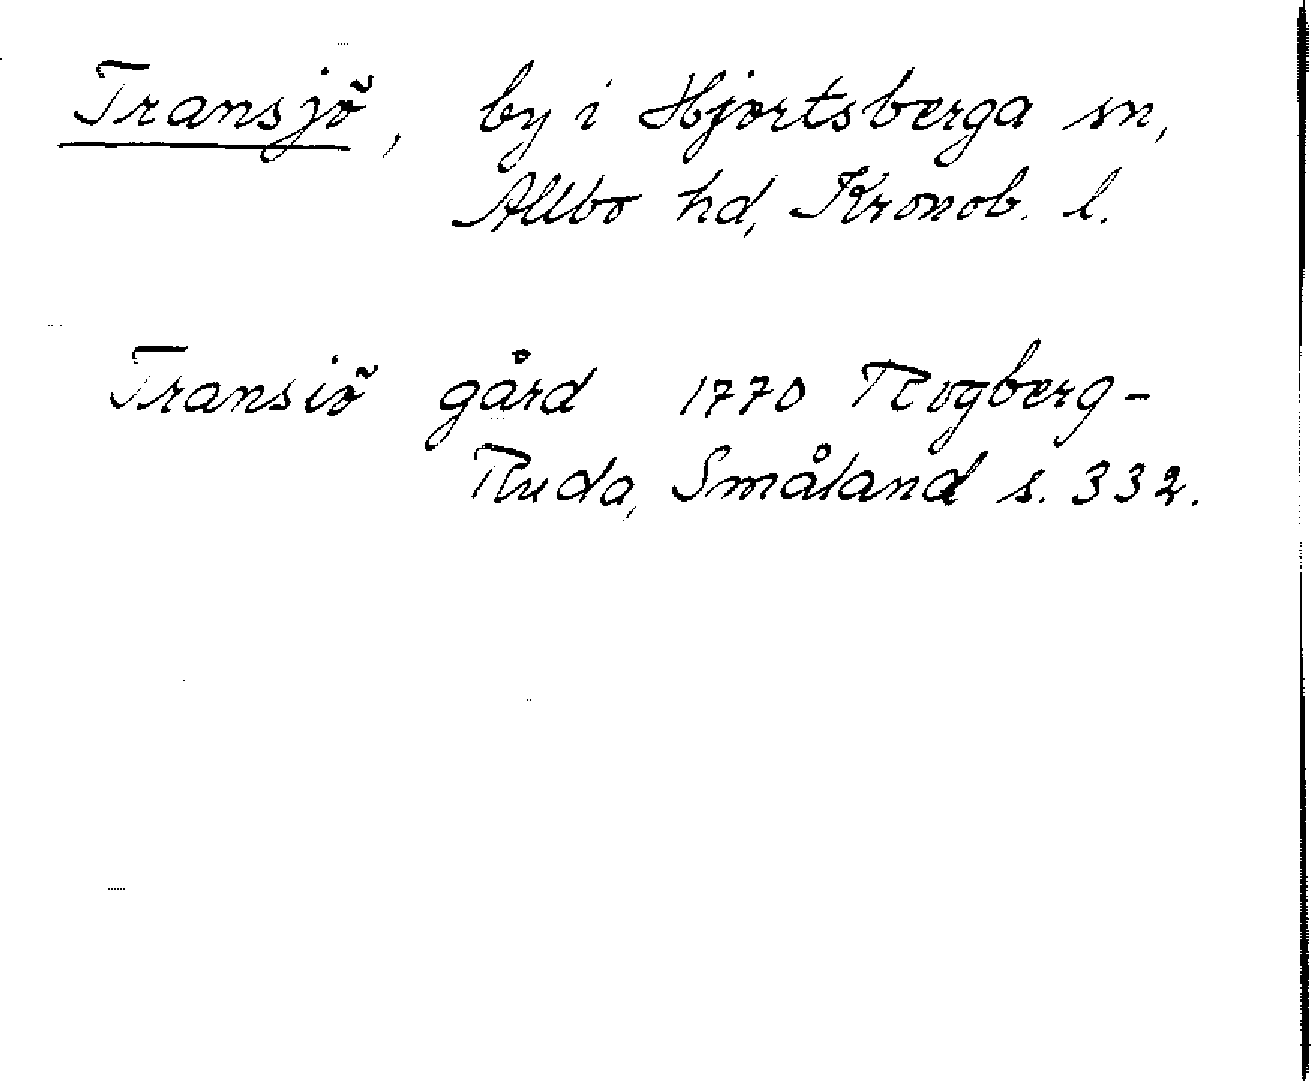 Transjö, by i Hjortsberga sn,
Allbo hd, Kronob. l.
Transiö gård 1770 Rogberg-
Ruda, Småland s. 332.